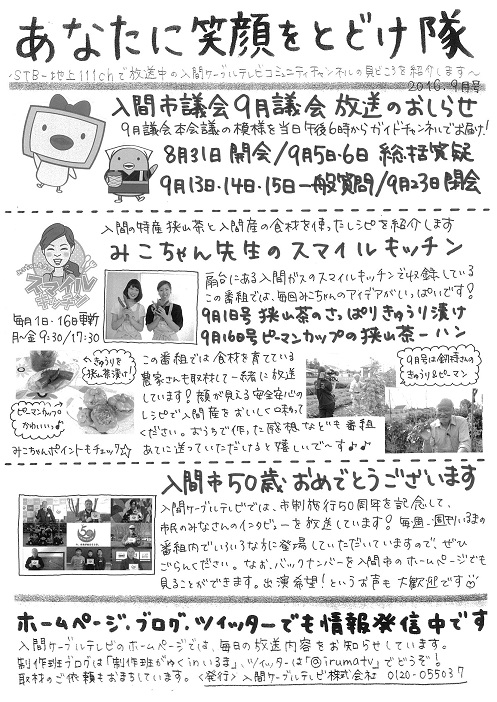 あなたに笑顔をとどけ隊
～STB・地上111chで放送中の入間ケーブルテレビコミュニティチャンネルの見どころを紹介します～
2016.9月号
入間市議会9月議会 放送のおしらせ
9月議会本会議の模様を当日午後6時からガイドチャンネルでお届け!
8月31日 開会/9月5日・6日 総括質疑
9月13日・14日・15日 一般質問/9月23日 閉会
入間の特産狭山茶と入間産の食材を使ったレシピを紹介します
みこちゃん先生のスマイルキッチン
スマイル
キッチン
毎月1日・16日更新
月～金 9:30/17:30
扇台にある入間ガスのスマイルキッチンで収録している
この番組では、毎回みこちゃんのアイデアがいっぱいです!
9月1日号 狭山茶のさっぱりきゅうり漬け
9月16日号 ピーマンカップの狭山茶ーハン
きゅうりを
狭山茶漬け!
ピーマンカップ
かわいい♪
みこちゃんポイントもチェック☆
この番組では食材を育てている
農家さんも取材して一緒に放送
しています!顔が見える安全安心の
レシピで入間産をおいしく味わって
ください。おうちで作った感想なども番組
あてに送っていただけると嬉しいで～す♪♪
9月号は餌時さんの
きゅうり&ピーマン
入間市50歳おめでとうございます
入間ケーブルテレビでは、市制施行50周年を記念して、
市民のみなさんのインタビューを放送しています!毎週、週刊いるまの
番組内でいろいろな方に登場していただいていますので、ぜひ
ごらんください。なお、バックナンバーを入間市のホームページでも
見ることができます。出演希望!というお声も大歓迎です
ホームページ・ブログ・ツイッターでも情報発信中です
入間ケーブルテレビのホームページでは、毎日の放送内容をお知らせしています。
制作班ブログは「制作班がゆくinいるま」、ツイッターは「@irumatv」でどうぞ!
取材のご依頼もおまちしています。<発行>入間ケーブルテレビ株式会社 0120-055037